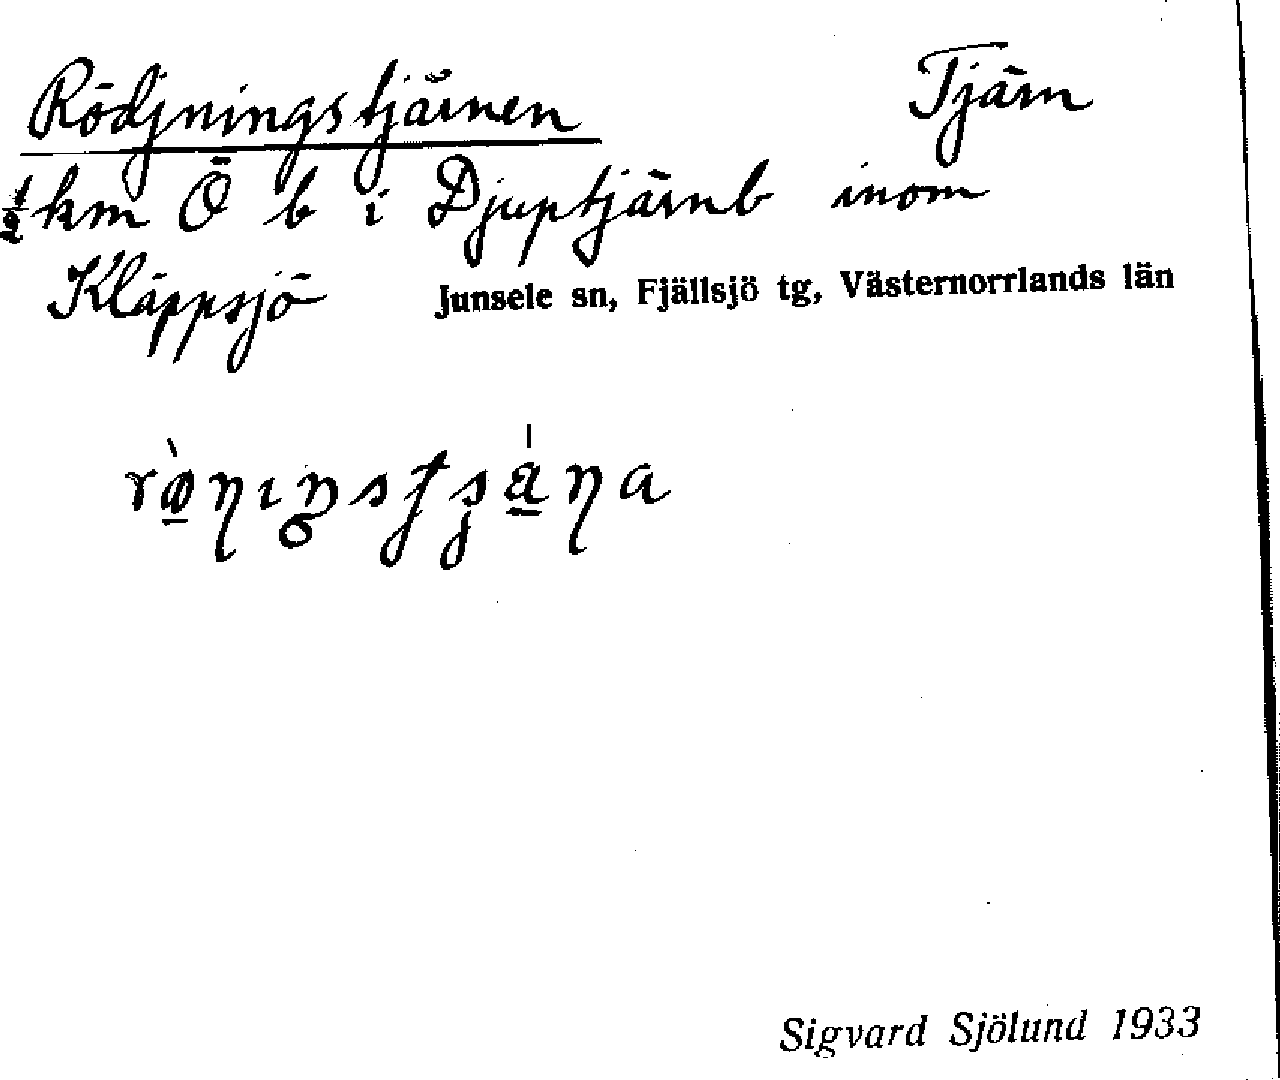 Rödjningstjärnen Tjärn
1/2 km Ö b i Djuptjärnb inom
Kläppsjö Junsele sn, Fjällsjö tg, Västernorrlands län
Sigvard Sjölund 1933